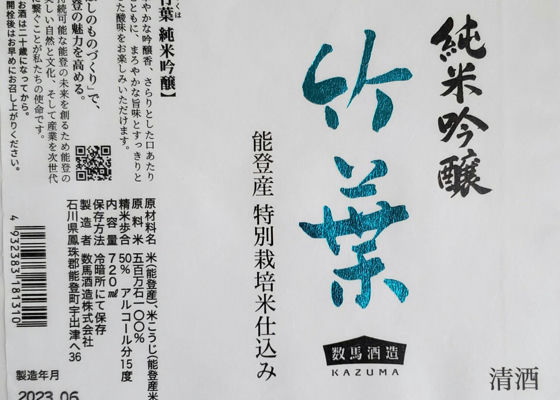 純米吟醸
竹葉
能登産 特別栽培米仕込み
数馬酒造
KAZUMA
清酒
竹葉 純米吟醸】
くは
やかな吟醸香、さらりとした口あたり
ともに、まろやかな旨味とすっきりと
た酸味をお楽しみいただけます。
しのものづくり」で、
登の魅力を高める。
持続可能な能登の未来を創るため能登の
美しい自然と文化、そして産業を次世代
に繋ぐことが私たちの使命です。
お酒は二十歳になってから。
開栓後はお早めにお召し上がりください。
原材料名 米(能登産)、米こうじ(能登産米
原料米 五百万石一〇〇%
精米歩合 50% アルコール分15度
内容量 720㎖
保存方法 冷暗所にて保存
製造者 数馬酒造株式会社
石川県鳳珠郡能登町宇出津ヘ36
4 932383 181310
製造年月
2023.06